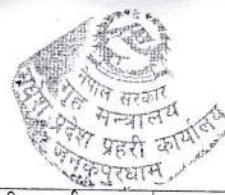 नेपाल सरकार
गृह मन्त्रालय
प्रदेश प्रहरी कार्यालय
जनकपुरधाम